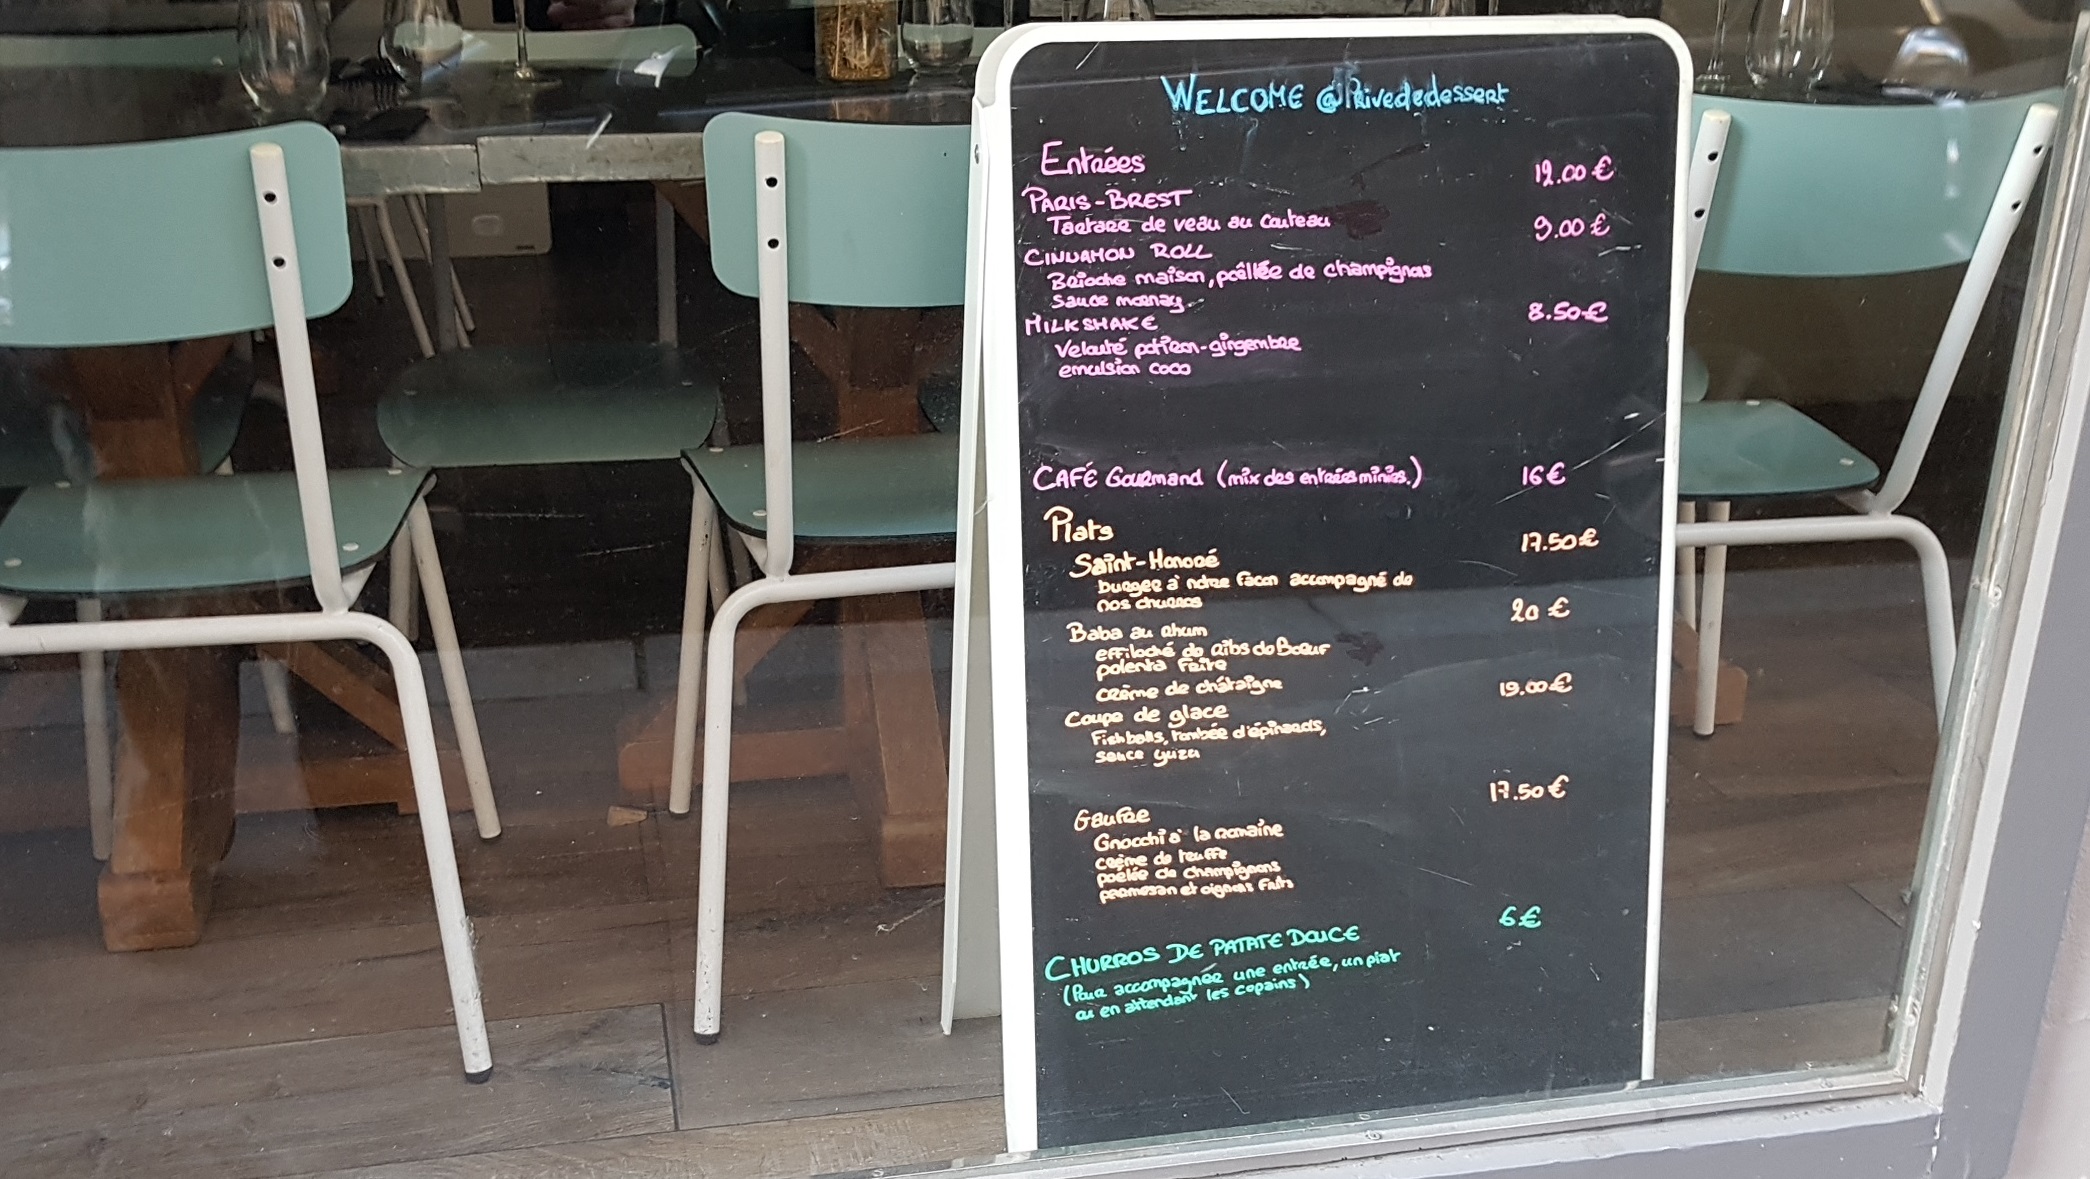 WELCOME @Privédedessert
Entrées
12.00 €
PARIS-BREST
Tartare de veau au couteau
9.00 €
CINNAMON ROLL
Brioche maison, poêllée de champignons
sauce mornay
8.50 €
MILKSHAKE
Velouté potiron-gingembre
emulsion coco
CAFÉ Gourmand (mix des entrées minies.) 16 €
Plats
17.50 €
Saint-Honoré
burger à notre facon accompagné de
nos churros
20 €
Baba au rhum
effiloché de ribs de Boeuf
polenta frite
crème de châtaigne
19.00 €
Coupe de glace
Fish balls, tombée d'épinards,
sauce yuzu
17.50 €
Gaufre
Gnocchi à la romaine
crème de truffe
poêlée de champignons
parmesan et oignons frits
6 €
CHURROS DE PATATE DOUCE
(Pour accompagnée une entrée, un plat
ou en attendant les copains)